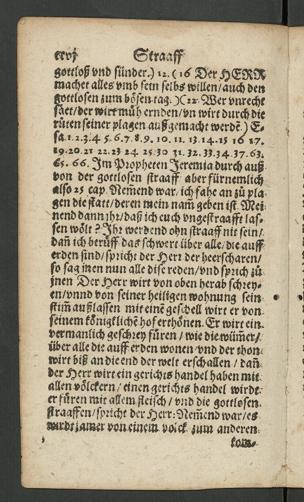 ccvj Straaff
gottloß vnd sünder.) 12. ( 16 Der HERR
machet alles vmb sein selbs willen/ auch den
gottlosen zum bösen tag. )( 22. Wer vnrecht
säet/ der wirt müh ernden/ vn̄ wirt durch die
rüten seiner plagen auß gemacht werdē. ) E-
sa. 1. 2. 3. 4. 5. 6. 7. 8. 9. 10. 11. 13. 14. 15. 16. 17.
19. 20. 21. 22. 23. 24. 25. 30. 31. 32. 33. 34. 37. 63.
65. 66. Im Propheten Jeremia durch auß
von der gottlosen straaff aber fürnemlich
also 25 cap. Nem̄end war/ ich fahe an zů pla-
gen die statt/ deren mein nam̄ geben ist. Mei-
nend dann jhr/ daß ich euch vngestraafft las-
sen wölt? Jhr werdend ohn straaff nit sein/
dañ ich berüff das schwert über alle/ die auff
erden sind/ spricht der Herr der heerscharen/
so sag jnen nun alle dise reden/ vnd sprich zů
jnen Der Herr wirt von oben herab schrey-
en/ vnnd von seiner heiligen wohnung sein
stim̄ außlassen mit einē geschell wirt er von
seinem königklichē hof erthönen. Er wirt ein
vermanlich geschrey füren/ wie die wümer/
über alle die auff erden wonen vnd der thon
wirt biß an die end der welt erschallen/ dañ
der Herr wirt ein gerichts handel haben mit
allen völckern/ einen gerichts handel wirdt
er füren mit allem fleisch/ vnd die gottlosen
straaffen/ spricht der Herr: Nem̄end war/ es
wirdt jamer von einem volck zum anderen
kom-